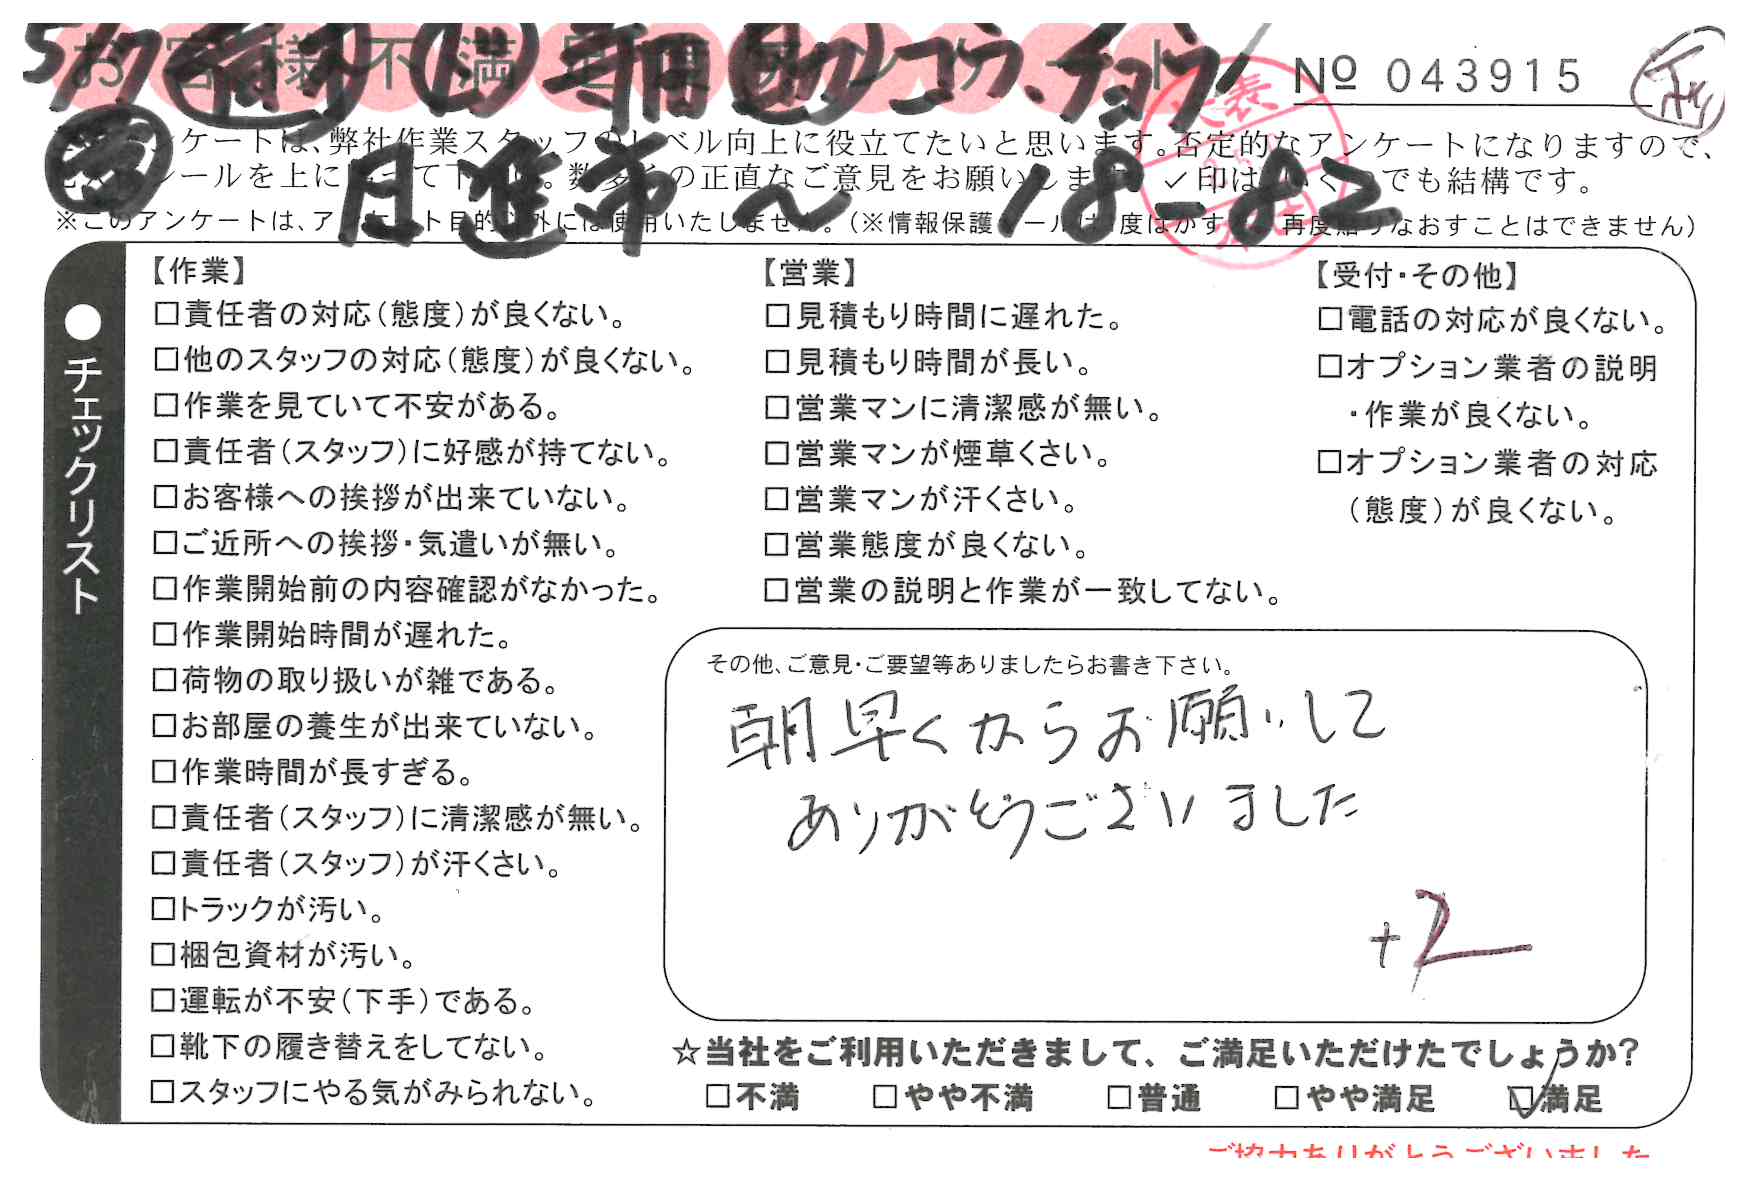 お客様不満足度アンケート
№ 043915
5/7 コウ、チョウ
日進市〜 18-82
ンケートは、弊社作業スタッフのレベル向上に役立てたいと思います。否定的なアンケートになりますので、
シールを上に って下 。数多くの正直なご意見をお願いします ✓印は くつでも結構です。
※このアンケートは、アンケート目的以外には使用いたしません。(※情報保護シールは1度はがすと 再度貼りなおすことはできません)
●チェックリスト
【作業】
□責任者の対応(態度)が良くない。
□他のスタッフの対応(態度)が良くない。
□作業を見ていて不安がある。
□責任者(スタッフ)に好感が持てない。
□お客様への挨拶が出来ていない。
□ご近所への挨拶・気遣いが無い。
□作業開始前の内容確認がなかった。
□作業開始時間が遅れた。
□荷物の取り扱いが雑である。
□お部屋の養生が出来ていない。
□作業時間が長すぎる。
□責任者(スタッフ)に清潔感が無い。
□責任者(スタッフ)が汗くさい。
□トラックが汚い。
□梱包資材が汚い。
□運転が不安(下手)である。
□靴下の履き替えをしてない。
□スタッフにやる気がみられない。
【営業】
□見積もり時間に遅れた。
□見積もり時間が長い。
□営業マンに清潔感が無い。
□営業マンが煙草くさい。
□営業マンが汗くさい。
□営業態度が良くない。
□営業の説明と作業が一致してない。
【受付・その他】
□電話の対応が良くない。
□オプション業者の説明
・作業が良くない。
□オプション業者の対応
(態度)が良くない。
その他、ご意見・ご要望等ありましたらお書き下さい。
朝早くからお願いして
ありがとうございました
+2
☆当社をご利用いただきまして、ご満足いただけたでしょうか?
□不満 □やや不満 □普通 □やや満足 ☑満足
ご協力ありがとうございました